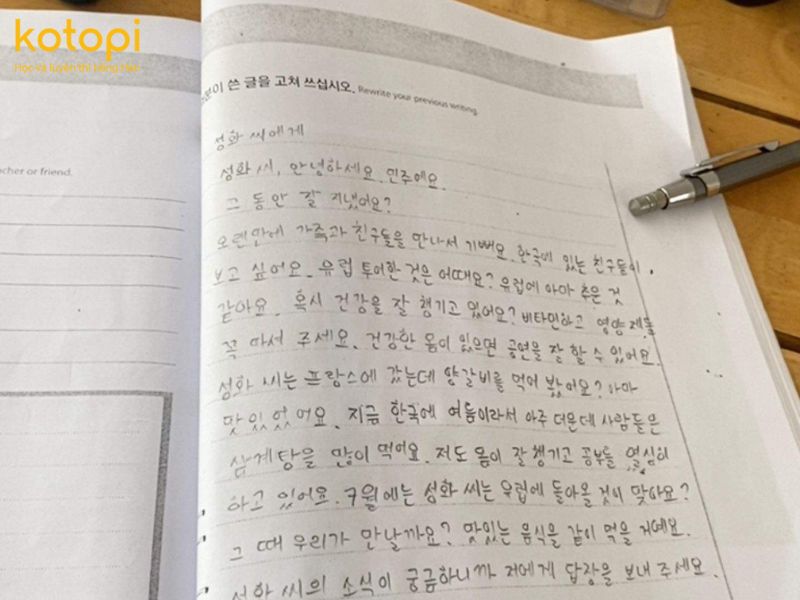 kotopi
Học và luyện thi tiếng Hàn
쓴 글을 고쳐 쓰십시오. Rewrite your previous writing.
cher or friend.
성화 씨에게
성화 씨, 안녕하세요. 민주예요.
그 동안 잘 지냈어요?
오랜만에 가족과 친구들을 만나서 기뻐요. 한국에 있는 친구들이
보고 싶어요. 유럽 투어한 것은 어때요? 유럽에 아마 추운 것
같아요. 혹시 건강을 잘 챙기고 있어요? 비타민하고 영양 제품
꼭 마셔 주세요. 건강한 몸이 있으면 공연을 잘 할 수 있어요.
성화 씨는 프랑스에 갔는데 양갈비를 먹어 봤어요? 아마
맛있었어요. 지금 한국에 여름이라서 아주 더운데 사람들은
삼계탕을 많이 먹어요. 저도 몸이 잘 챙기고 공부를 열심히
하고 있어요. 7월에는 성화 씨는 유럽에 돌아올 것이 맞아요?
그 때 우리가 만날까요? 맛있는 음식을 같이 먹을 거예요.
성화 씨의 소식이 궁금하니까 저에게 답장을 보내 주세요.